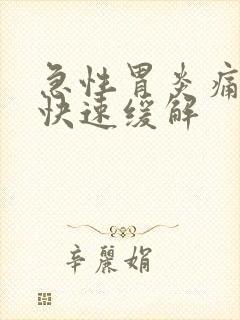 急性胃炎痛
快速缓解
辛麗娟